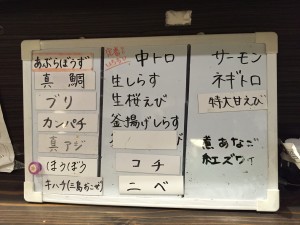 あぶらぼうず
真鯛
ブリ
カンパチ
真アジ
ほうぼう
キハチ(三島おこぜ)
中トロ
生しらす
生桜えび
釜揚げしらす
コチ
ニベ
サーモン
ネギトロ
特大甘えび
煮あなご
紅ズワイ